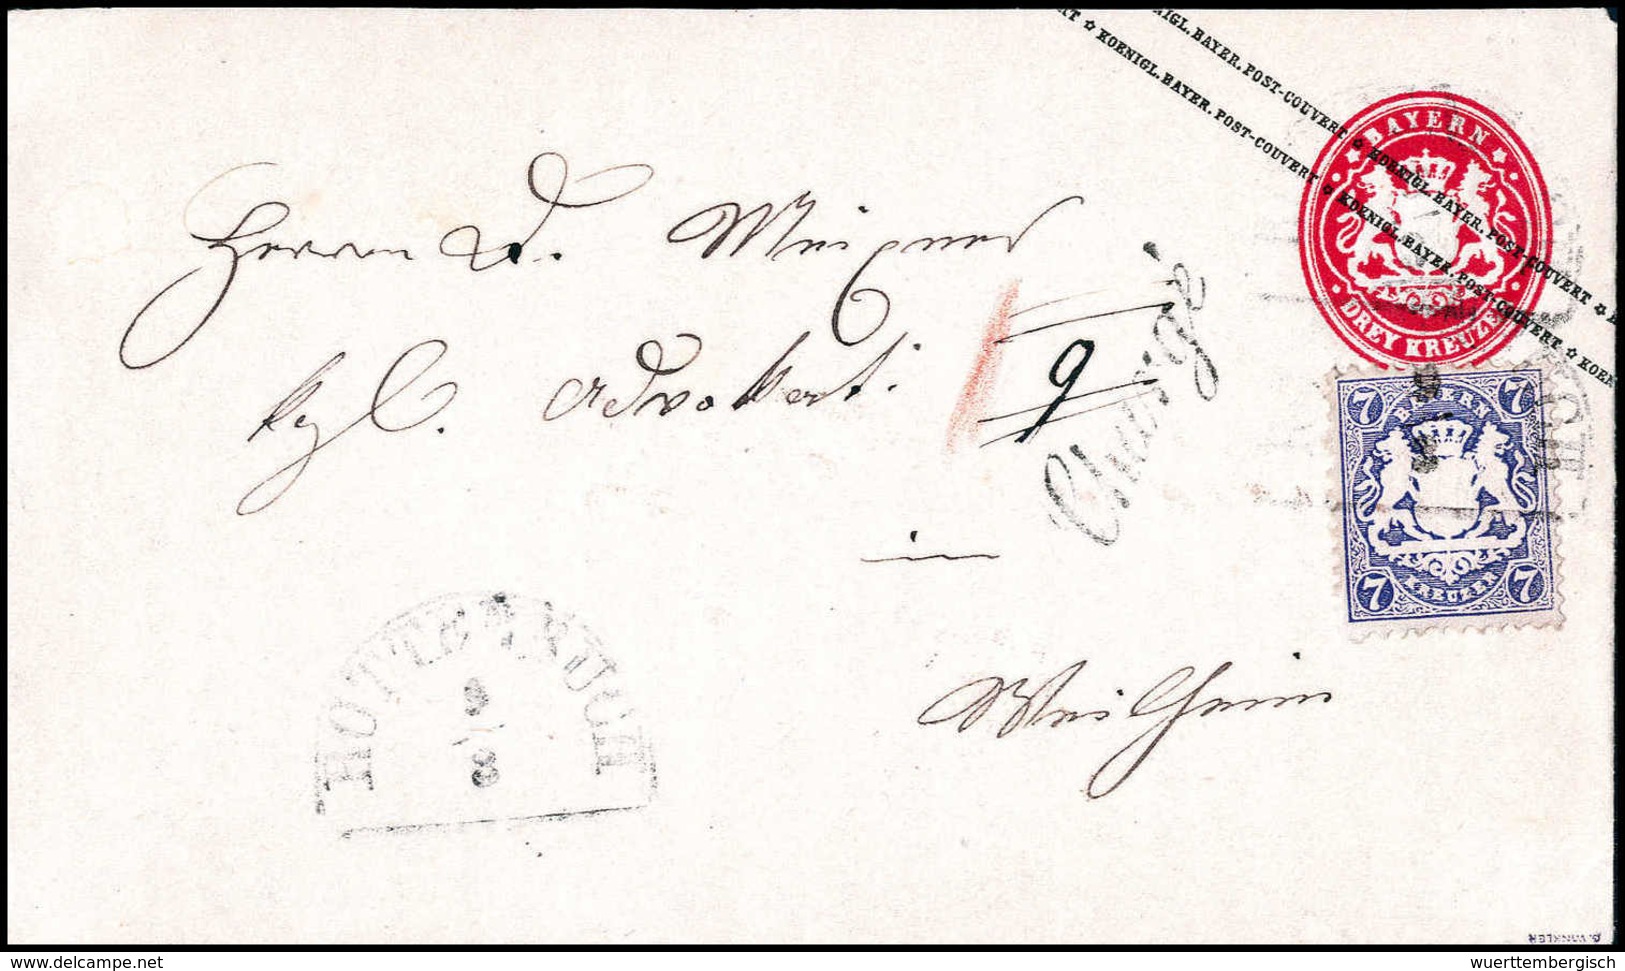 KOENIGL.BAYER.POST-COUVERT ☆ KOENIGL.BAYER.POST-COUVERT ☆
☆ KOENIGL.BAYER.POST-COUVERT ☆ KOENIGL.BAYER.POST-COUVERT ☆ KOEN
BAYERN
DREY KREUZER
Herrn D.
kgl. Advokat.
9
Chargé
in
Weilheim
7 BAYERN 7
7 KREUZER 7
9/8
P. WINKLER
www.delcampe.net
wuerttembergisch